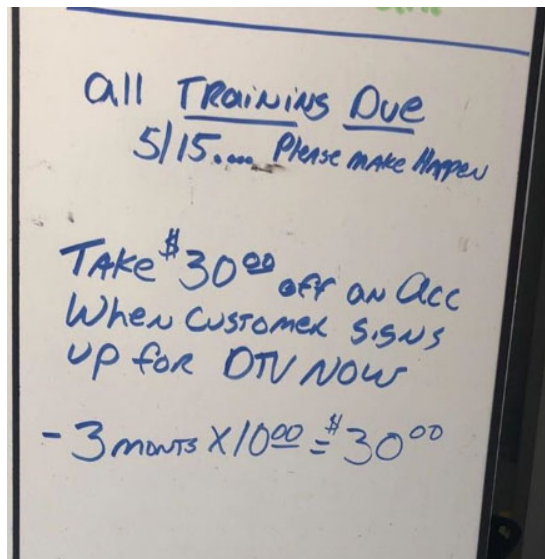 all TRAINING DUE
5/15.... Please make Happen
TAKE $30.00 off an acc
When customer signs
up for DTV NOW
- 3 monts X10.00 = $30.00